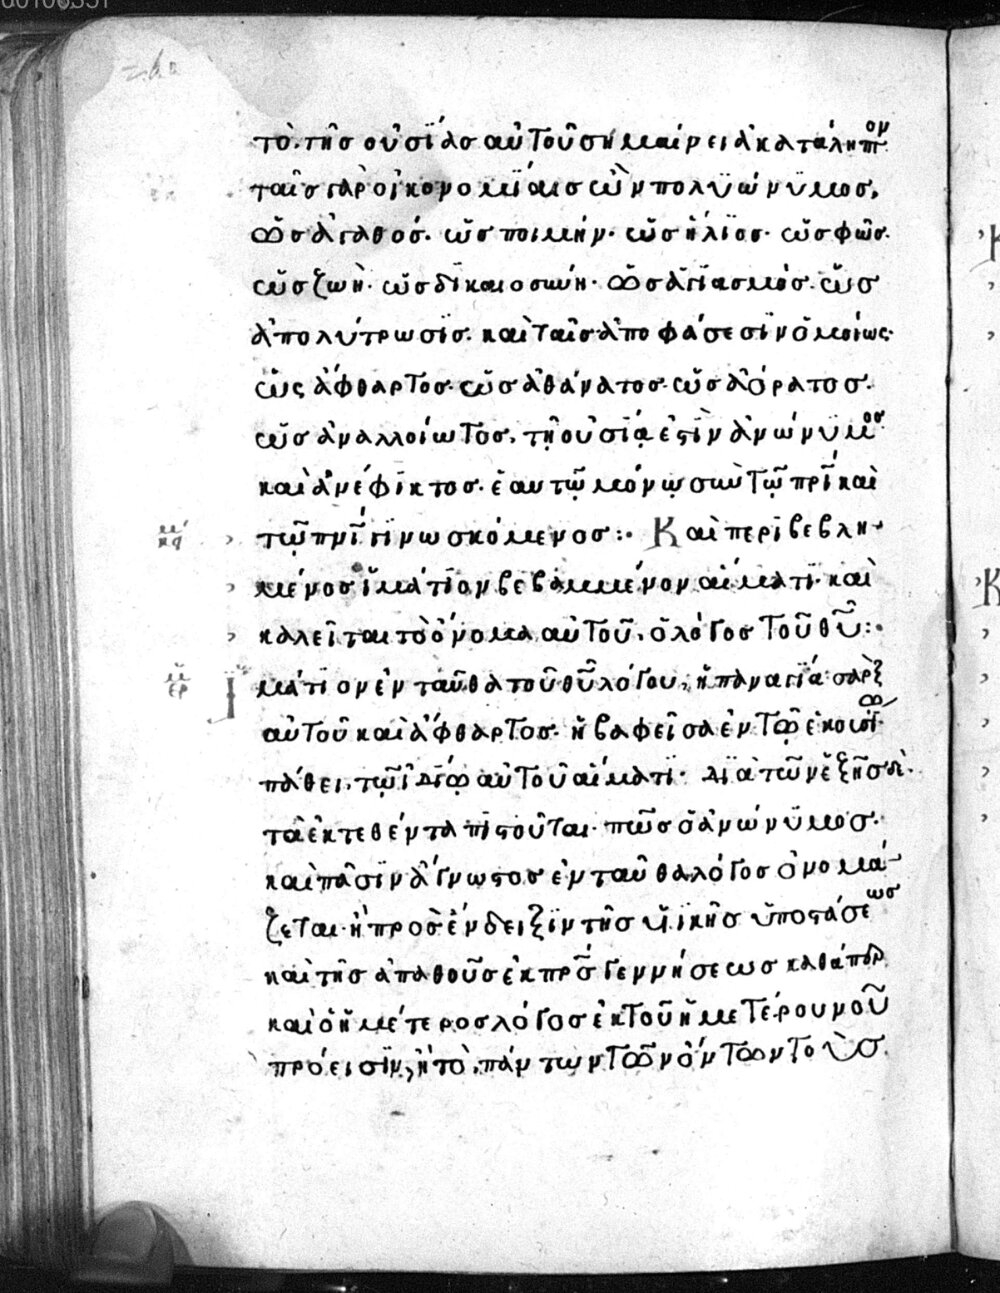 τὸ τῆς οὐσίας αὐτοῦ σημαίνει ἀκατάληπτον·
ταῖς γὰρ οἰκονομίαις ὢν πολυώνυμος,
ὡς ἀγαθός· ὡς ποιμήν· ὡς ἥλιος· ὡς φῶς·
ὡς ζωή· ὡς δικαιοσύνη· ὡς ἁγιασμός· ὡς
ἀπολύτρωσις· καὶ ταῖς ἀποφάσεσιν ὁμοίως·
ὡς ἄφθαρτος· ὡς ἀθάνατος· ὡς ἀόρατος·
ὡς ἀναλλοίωτος, τῇ οὐσίᾳ ἐστὶν ἀνώνυμος
καὶ ἀνέφικτος· ἑαυτῷ μόνῳ σὺν τῷ πρὶ καὶ
τῷ πνι γινωσκόμενος:· Καὶ περιβεβλη-
μένος ἱμάτιον βεβαμμένον αἵματι· καὶ
καλεῖται τὸ ὄνομα αὐτοῦ, ὁ λόγος τοῦ θυ:·
Ἱμάτιον ἐνταῦθα τοῦ θυ λόγου, ἡ παναγία σὰρξ
αὐτοῦ καὶ ἄφθαρτος· ἡ βαφεῖσα ἐν τῷ ἑκουσίῳ
πάθει, τῷ ἰδίῳ αὐτοῦ αἵματι· διὰ τῶν ἑξῆς δὲ
τὰ ἐκτεθέντα πιστοῦται· πῶς ὁ ἀνώνυμος·
καὶ πᾶσιν ἄγνωστος ἐνταῦθα λόγος ὀνομά-
ζεται· ἢ πρὸς ἔνδειξιν τῆς υἱικῆς ὑποστάσεως
καὶ τῆς ἀπαθοῦς ἐκ πρς γεννήσεως καθάπερ
καὶ ὁ ἡμέτερος λόγος ἐκ τοῦ ἡμετέρου νοῦ
πρόεισιν, ἢ τὸ, πάντων τῶν ὄντων τοὺς